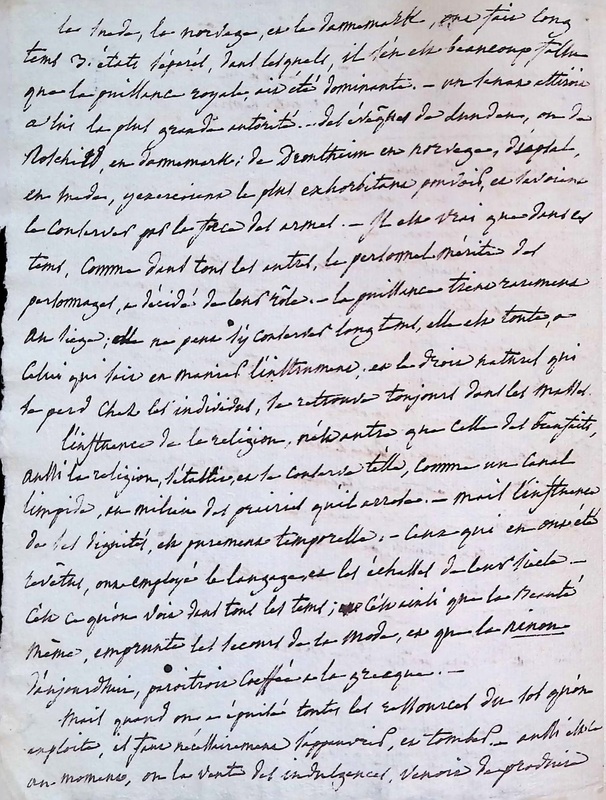 la suede, la norvege, et le dannemark, ont fait long
tems 3. états séparés, dans lesquels, il s'en est beaucoup fallu
que la puissance royale, ait été dominante. – un senat attiroit
a lui la plus grande autorité. – des évêques de lunden, ou de
Roschild, en dannemark; de Drontheim en norvege, d'upsal,
en suede, y exercoient le plus exhorbitant pouvoir, et savoient
le conserver par la force des armes. – Il est vrai que dans ces
tems, comme dans tous les autres, le personnel mérite des
personnages, a décidé de leur rôle. – la puissance tient rarement
au siege; elle ne peut s'y conserver long tems, elle est toute, a
celui qui sait en manier l'instrument, et le droit naturel qui
se perd chez les individus, se retrouve toujours dans les masses.
l'influence de la religion, n'est autre que celle des bienfaits,
aussi la religion, s'établie, et se conserve t'elle, comme un canal
limpide, au milieu des prairies qu'il arrose. – mais l'influence
de ses dignités, est purement temporelle. – Ceux qui en ont été
revêtus, ont employé le langage, et les échasses de leur siecle. –
C'est ce qu'on voit dans tous les tems; c'est ainsi que la Beauté
même, emprunte les secours de la mode, et que la ninon
d'aujourdhui, paroitroit coeffée a la grecque. –
Mais quand on a épuisé toutes les ressources du sol qu'on
exploite, il faut nécessairement s'appauvrir, et tomber. – aussi
au moment, ou la vente des indulgences, venoit de produire